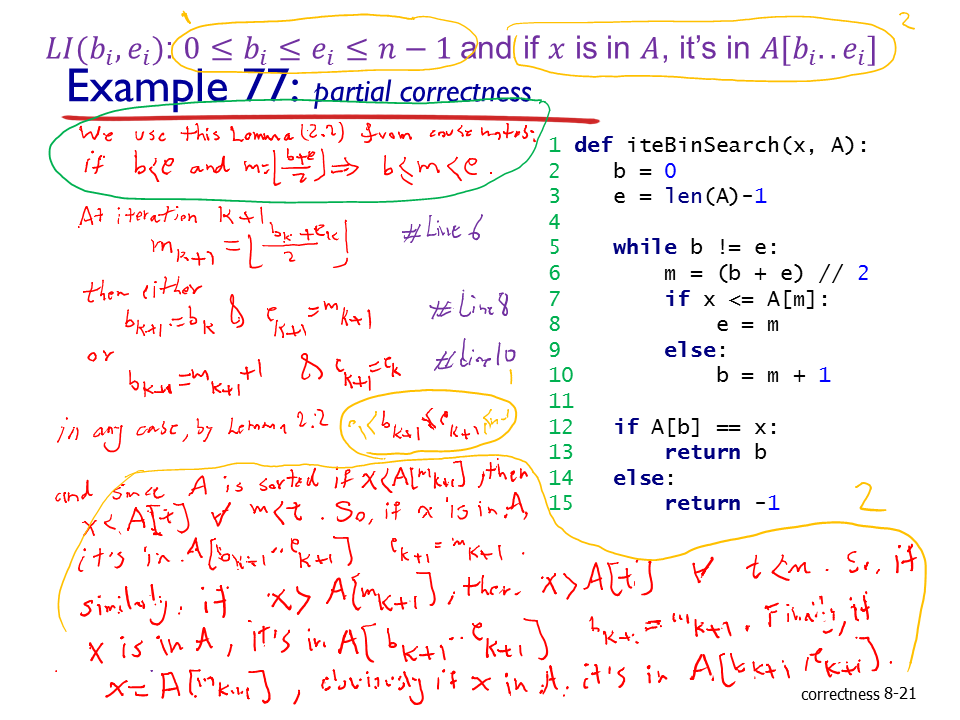 2
LI(bᵢ, eᵢ): 0 ≤ bᵢ ≤ eᵢ ≤ n − 1 and if x is in A, it's in A[bᵢ..eᵢ]
Example 77: partial correctness
We use this Lemma (2.2) from course notes:
if b<e and m=⌊(b+e)/2⌋ ⇒ b≤m<e.
At iteration k+1
m_{k+1} = ⌊(b_k + e_k)/2⌋ #Line 6
then either
b_{k+1} = b_k & e_{k+1} = m_{k+1} #Line 8
or
b_{k+1} = m_{k+1} + 1 & e_{k+1} = e_k #Line 10
1
in any case, by Lemma 2.2 b_{k+1} ≤ e_{k+1}
and since A is sorted if x<A[m_{k+1}], then
x < A[t] ∀ m<t. So, if x is in A,
it's in A[b_{k+1}..e_{k+1}] e_{k+1} = m_{k+1}.
similarly, if x > A[m_{k+1}], then x > A[t] ∀ t<m. So, if
x is in A, it's in A[b_{k+1}..e_{k+1}] b_{k+1} = m_{k+1}. Finally, if
x = A[m_{k+1}], obviously if x in A. it's in A[b_{k+1}, e_{k+1}].
1 def iteBinSearch(x, A):
2 b = 0
3 e = len(A)-1
4
5 while b != e:
6 m = (b + e) // 2
7 if x <= A[m]:
8 e = m
9 else:
10 b = m + 1
11
12 if A[b] == x:
13 return b
14 else:
15 return -1
2
correctness 8-21